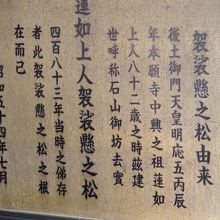 袈裟懸之松由来
後土御門天皇明応五丙辰
年本願寺中興之祖蓮如
上人八十二歳之時茲建
世呼称石山御坊去実
蓮如上人袈裟懸之松
四百八十三年当時之俤存
者此袈裟懸之松之根
在而己
昭和五十四年七月